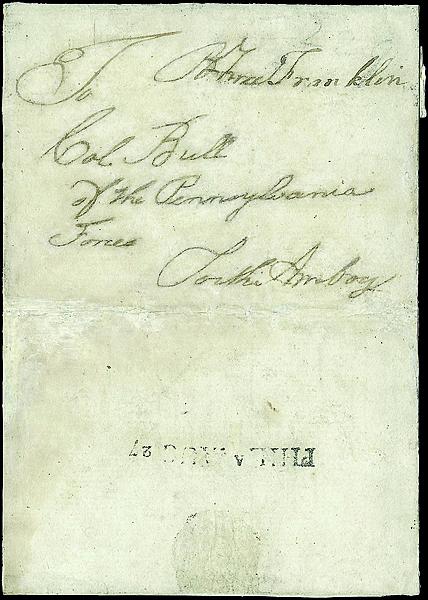 B Free Franklin
To
Col. Bull
of the Pennsylvania
Forces
Amboy
PHILA. AUG 27